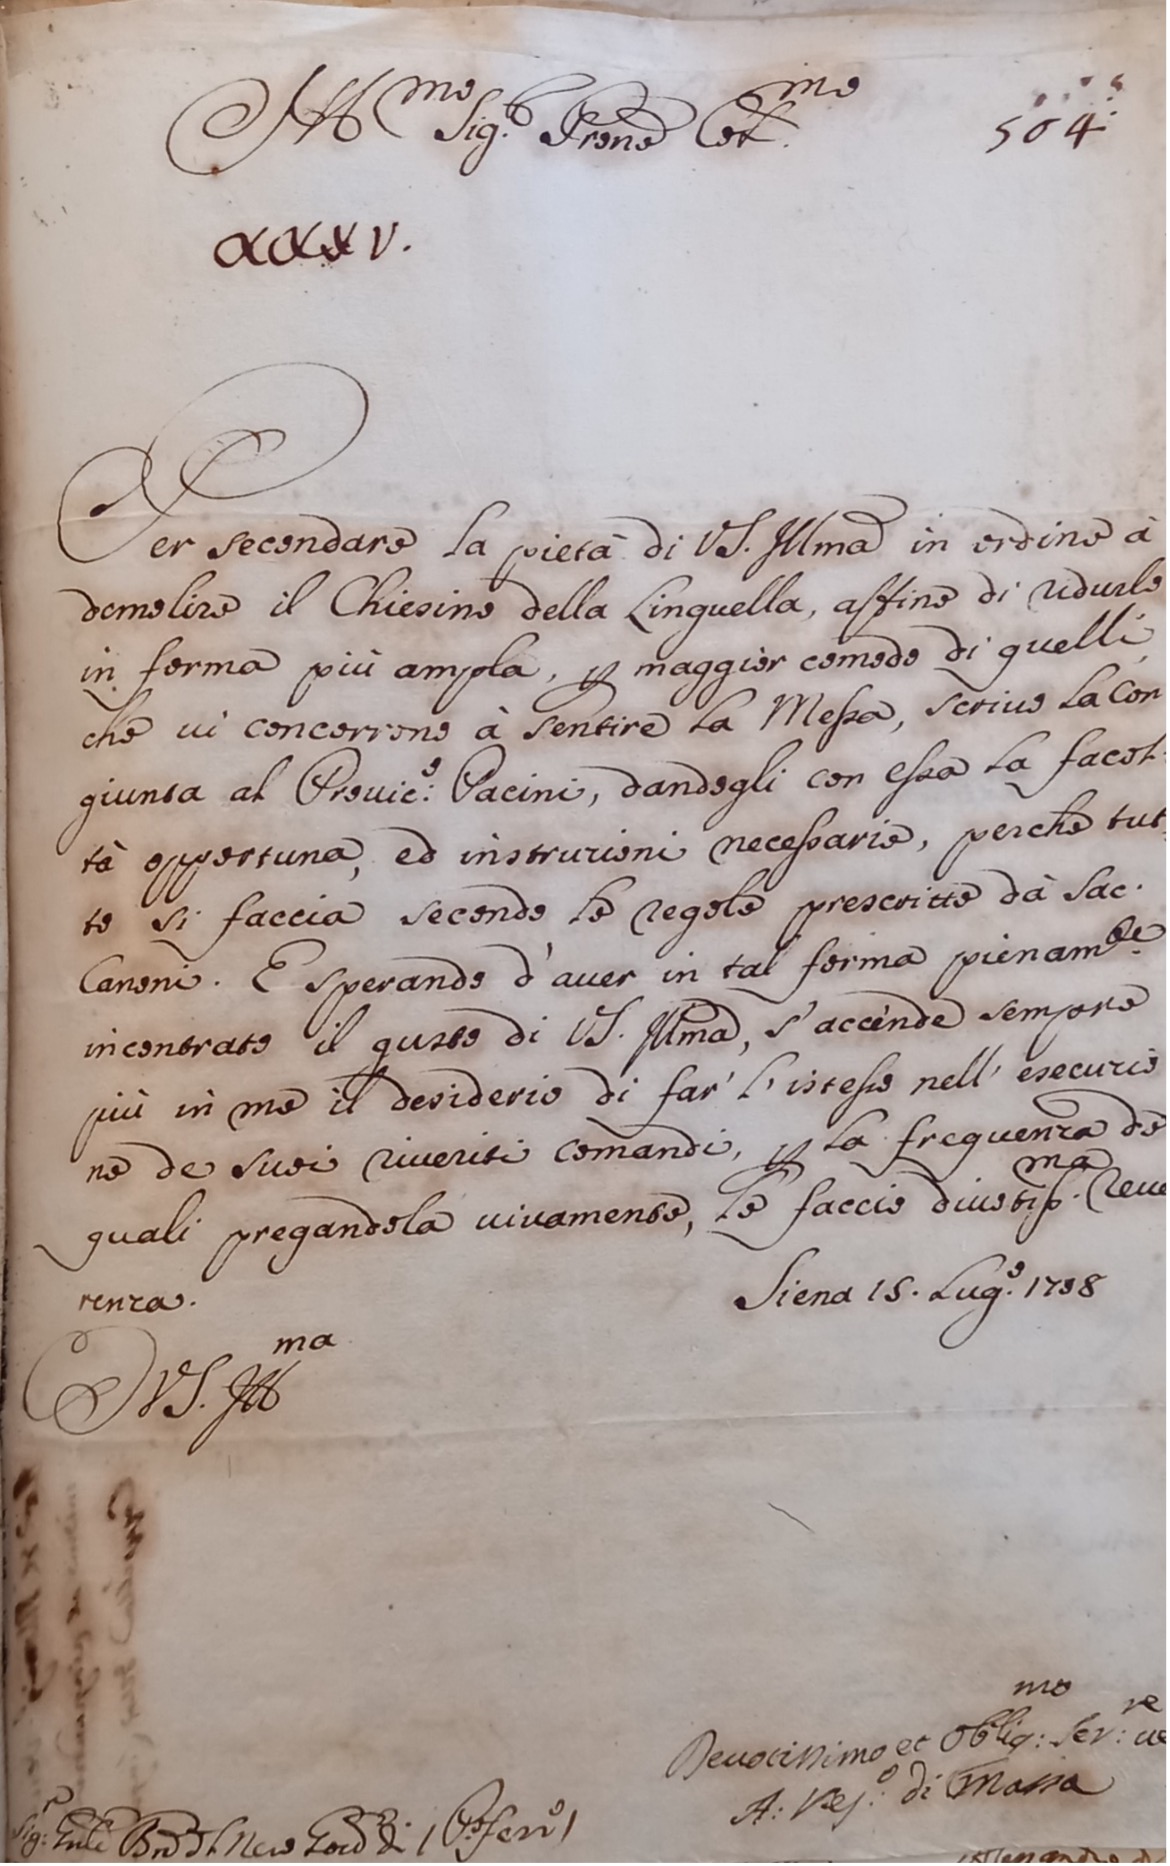 Ill.mo Sig.r Prone Col.mo
504.
XXXV.
Per secondare la pietà di VS. Illma in ordine à
demolire il Chiesino della Linguella, affine di ridurlo
in forma più ampla, p maggior comodo di quelli,
che vi concorrono à sentire la Messa, scrivo la Con
giunta al Provic.o Pacini, dandogli con essa la facol-
tà opportuna, ed instruzioni necessarie, perche tut
to si faccia secondo le regole prescritte dà Sac.
Canoni. E sperando d'aver in tal forma pienam.te
incontrato il gusto di VS. Illma, s'accende sempre
più in me il desiderio di far' l'istesso nell' esecuzio
ne de suoi riveriti comandi, p la frequenza de
quali pregandola vivamente, le faccio divotiss.ma Reve
renza.
Siena 15. Lug.o 1738
VS. Ill.ma
Devotissimo et Oblig.mo: Ser.re: ve
A: Ves.o di Massa
Sig.r